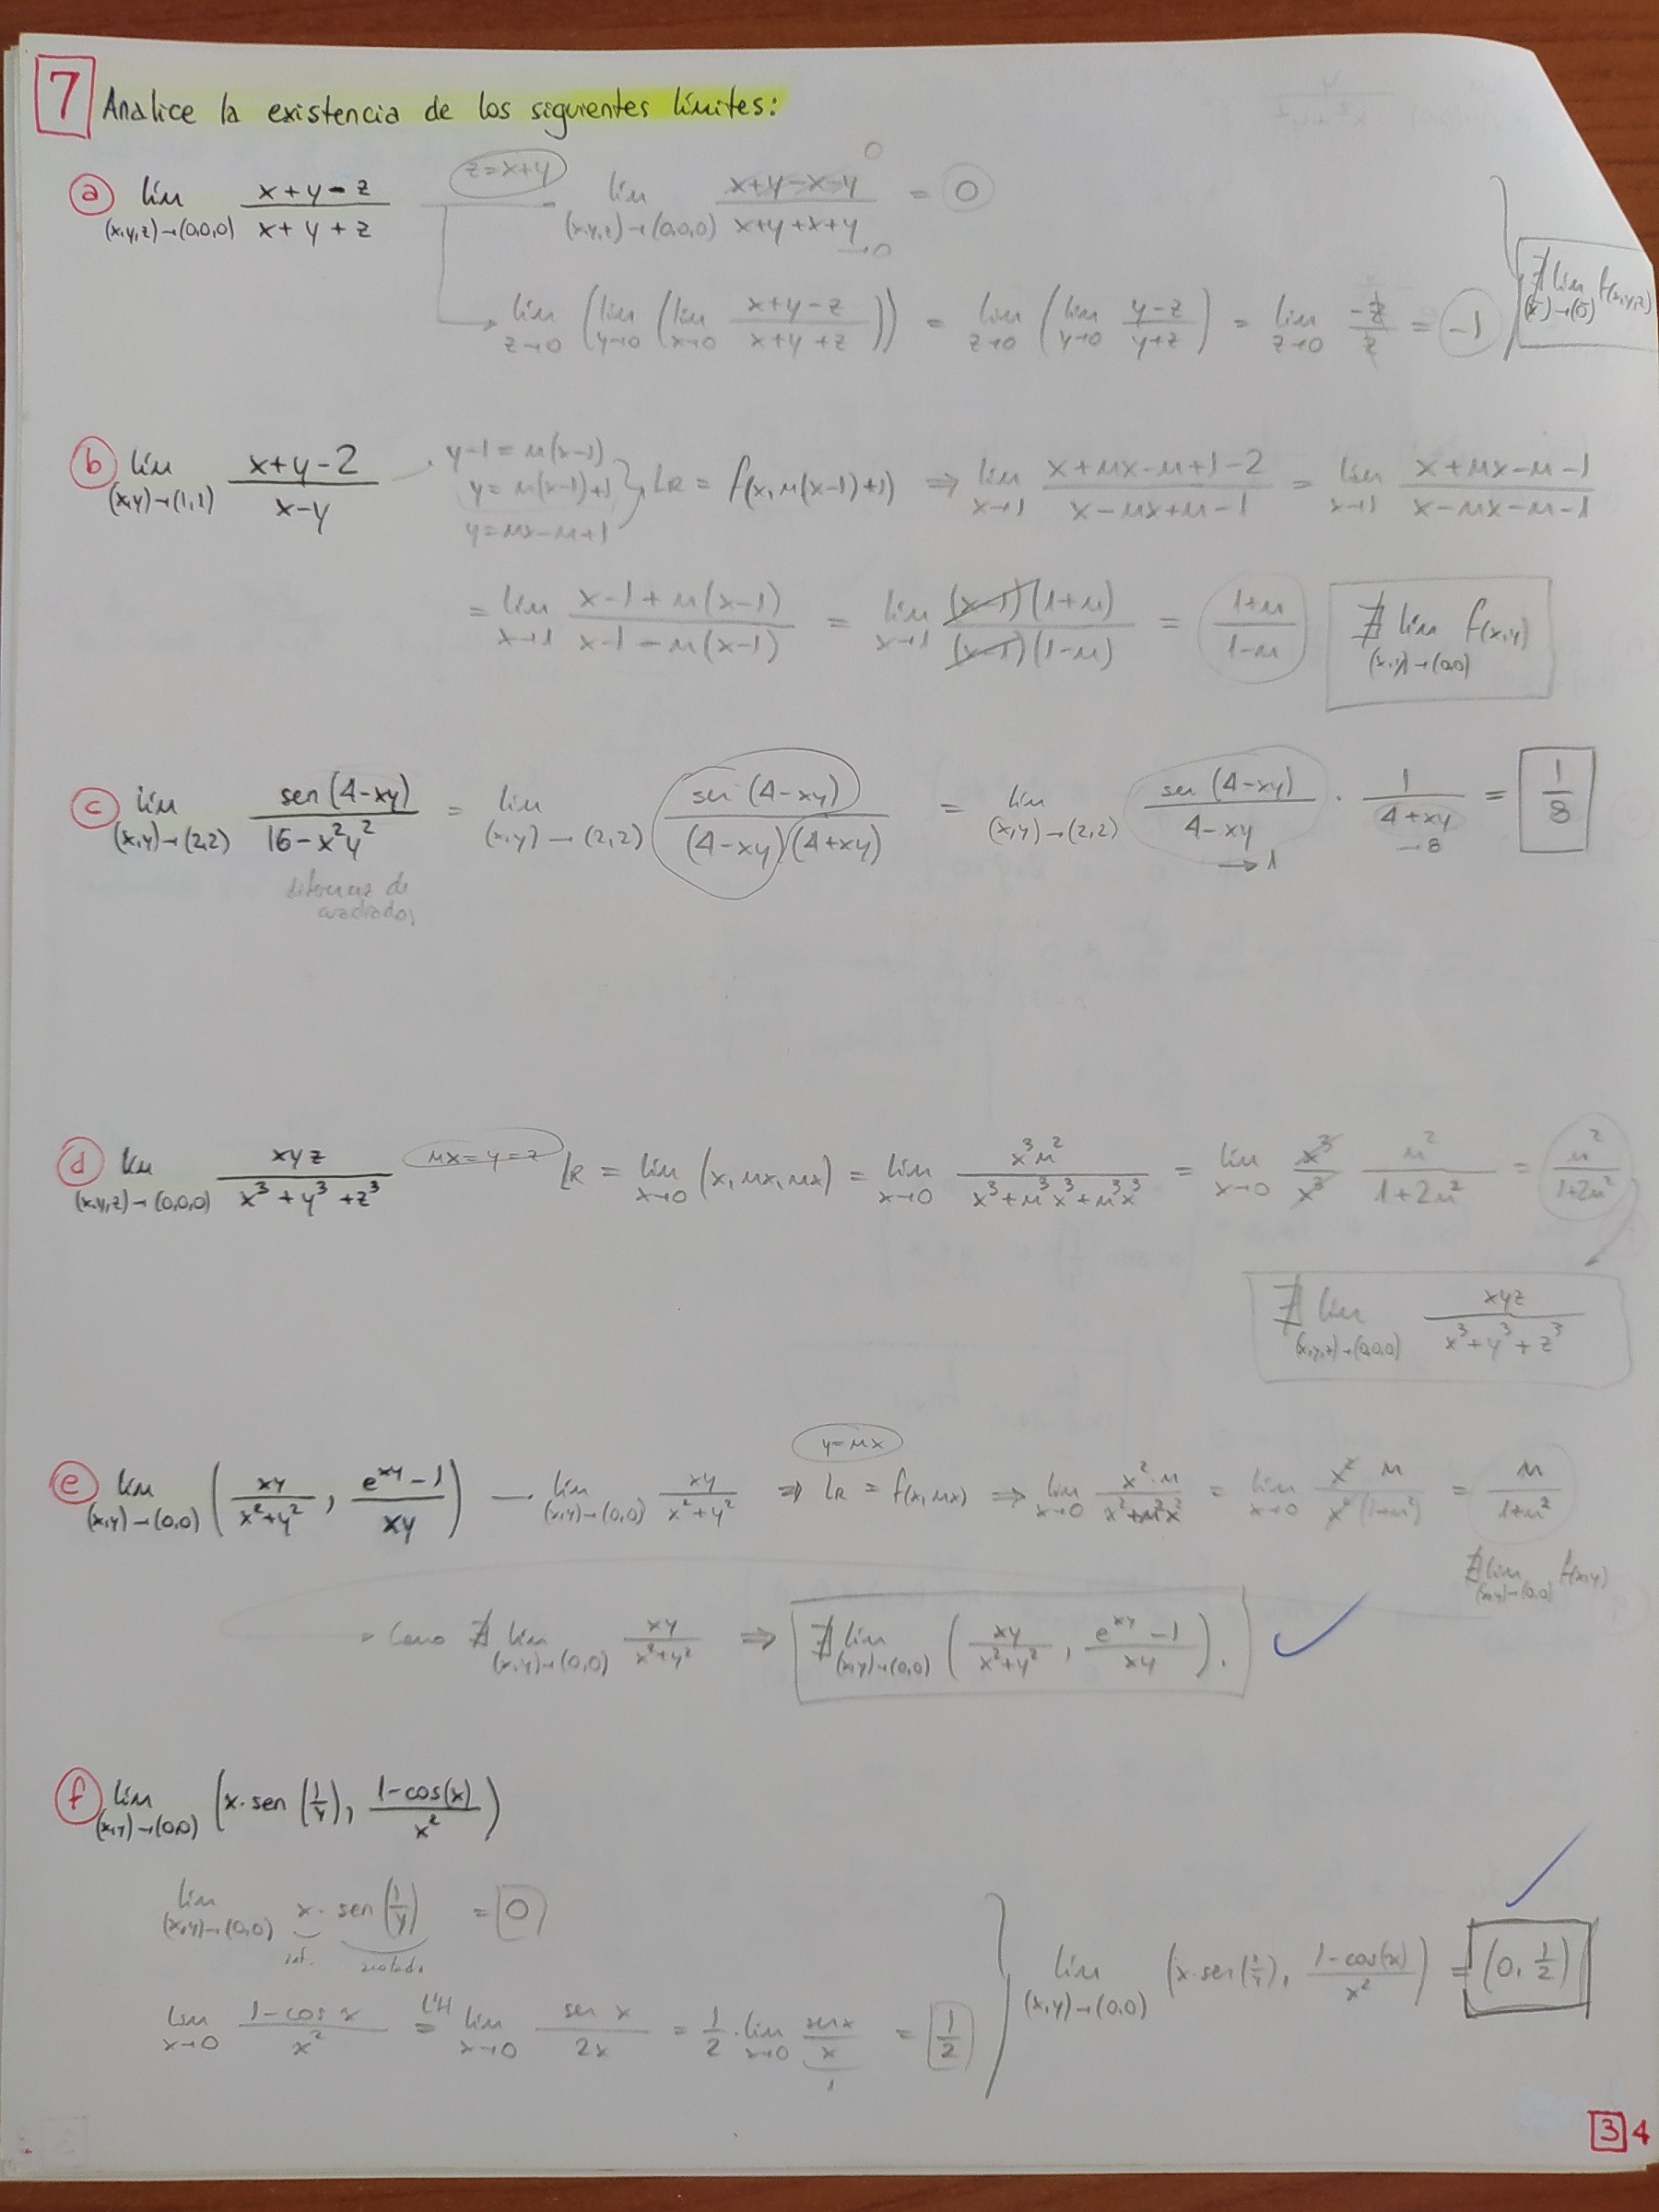 7 Analice la existencia de los siguientes límites:
a) lím (x,y,z)→(0,0,0) (x+y-z)/(x+y+z) z=x+y lím (x,y,z)→(0,0,0) (x+y-x-y)/(x+y+x+y) →0 = 0
→ lím z→0 (lím y→0 (lím x→0 (x+y-z)/(x+y+z))) = lím z→0 (lím y→0 (y-z)/(y+z)) = lím z→0 -z/z = -1 ∄ lím (x̄)→(0̄) f(x,y,z)
b) lím (x,y)→(1,1) (x+y-2)/(x-y) y-1=m(x-1)
y=m(x-1)+1
y=mx-m+1
LR = f(x,m(x-1)+1) ⇒ lím x→1 (x+mx-m+1-2)/(x-mx+m-1) = lím x→1 (x+mx-m-1)/(x-mx-m-1)
= lím x→1 (x-1+m(x-1))/(x-1-m(x-1)) = lím x→1 ((x-1)(1+m))/((x-1)(1-m)) = (1+m)/(1-m) ∄ lím (x,y)→(0,0) f(x,y)
c) lím (x,y)→(2,2) sen(4-xy)/(16-x²y²) = lím (x,y)→(2,2) sen(4-xy)/((4-xy)(4+xy)) = lím (x,y)→(2,2) sen(4-xy)/(4-xy) →1 · 1/(4+xy) →8 = 1/8
de
cuadrados
d) lím (x,y,z)→(0,0,0) xyz/(x³+y³+z³) mx=y=z LR = lím x→0 (x,mx,mx) = lím x→0 x³m²/(x³+m³x³+m³x³) = lím x→0 x³/x³ m²/(1+2m²) = m²/(1+2m²)
∄ lím (x,y,z)→(0,0,0) xyz/(x³+y³+z³)
e) lím (x,y)→(0,0) (xy/(x²+y²), (e^xy-1)/xy) — lím (x,y)→(0,0) xy/(x²+y²) y=mx ⇒ LR = f(x,mx) ⇒ lím x→0 x²·m/(x²+m²x²) = lím x→0 x² m/(x²(1+m²)) = m/(1+m²)
∄ lím (x,y)→(0,0) f(x,y)
Como ∄ lím (x,y)→(0,0) xy/(x²+y²) ⇒ ∄ lím (x,y)→(0,0) (xy/(x²+y²), (e^xy-1)/xy). ✓
f) lím (x,y)→(0,0) (x·sen(1/y), (1-cos(x))/x²)
lím (x,y)→(0,0) x·sen(1/y) = 0
inf. acotada
lím x→0 (1-cos x)/x² =L'H lím x→0 sen x/2x = 1/2·lím x→0 sen x/x = 1/2
1
lím (x,y)→(0,0) (x·sen(1/y), (1-cos(x))/x²) = (0, 1/2) ✓
3 4